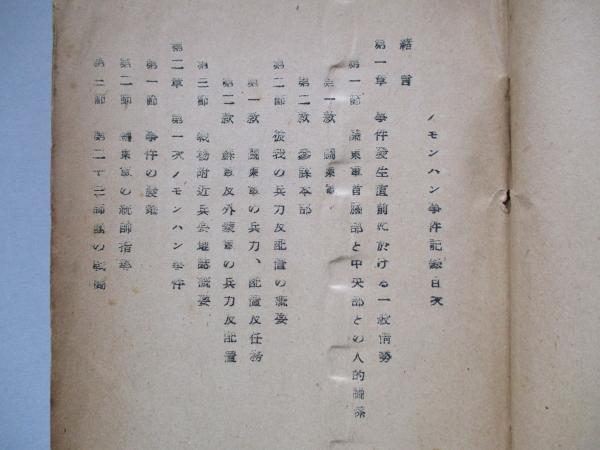 ノモンハン事件記録目次
緒言
第一章 事件発生直前に於ける一般情勢
第一節 関東軍首脳部と中央部との人的関係
第一款 関東軍
第二款 参謀本部
第二節 彼我の兵力及配置の概要
第一款 関東軍の兵力、配置及任務
第二款 蘇軍及外蒙軍の兵力及配置
第三節 戦場附近兵要地誌概要
第二章 第一次ノモンハン事件
第一節 事件の發端
第二節 関東軍の統帥指導
第三節 第二十三師団の戦闘